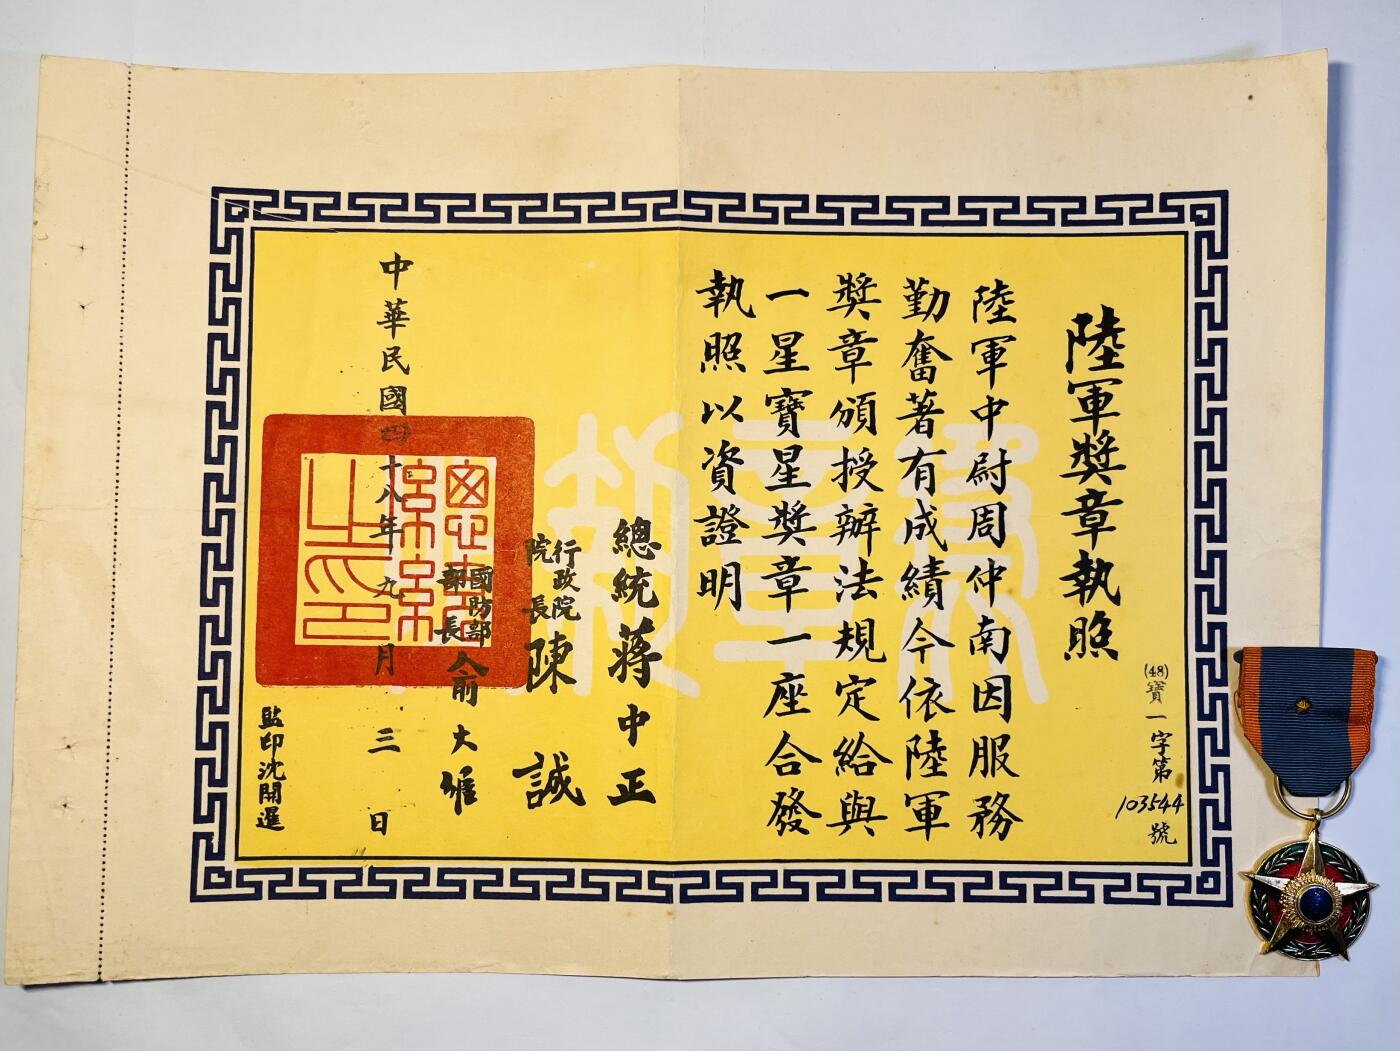 陸軍獎章執照
(48)寶一字第103544號
陸軍中尉周仲南因服務
勤奮著有成績今依陸軍
獎章頒授辦法規定給與
一星寶星獎章一座合發
執照以資證明
總統蔣中正
行政院院長陳誠
國防部部長俞大維
中華民國四十八年九月三日
總統之印
監印沈開暹